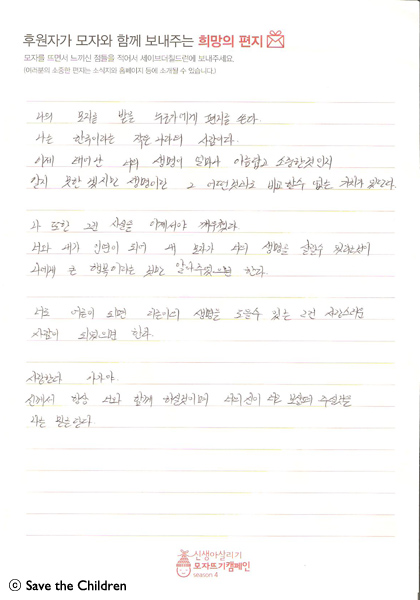 후원자가 모자와 함께 보내주는 희망의 편지
모자를 뜨면서 느끼신 점들을 적어서 세이브더칠드런에 보내주세요.
(여러분의 소중한 편지는 소식지와 홈페이지 등에 소개될 수 있습니다.)
나의 모자를 받을 누군가에게 편지를 쓴다.
나는 한국이라는 작은 나라의 사람이다.
이제 태어난 너의 생명이 얼마나 아름답고 소중한것인지
알지 못한 생명이란 그 어떤것과도 비교할수 없는 가치가
나 또한 그런 사실을 이제서야 깨우쳤다.
너와 내가 인연이 되어 내 모자가 너의 생명을 살릴수
나에게 큰 행복이라는 것만 알아주었으면 한다.
너도 어른이 되면 다른이의 생명을 도울수 있는 그런 자랑스러운
사람이 되었으면 한다.
사랑한다 아가야.
신께서 항상 너와 함께 하실것이며 너의 신이 너를 보살펴 주실것을
나는 믿는단다
신생아살리기
모자뜨기캠페인
season 4
ⓒ Save the Children